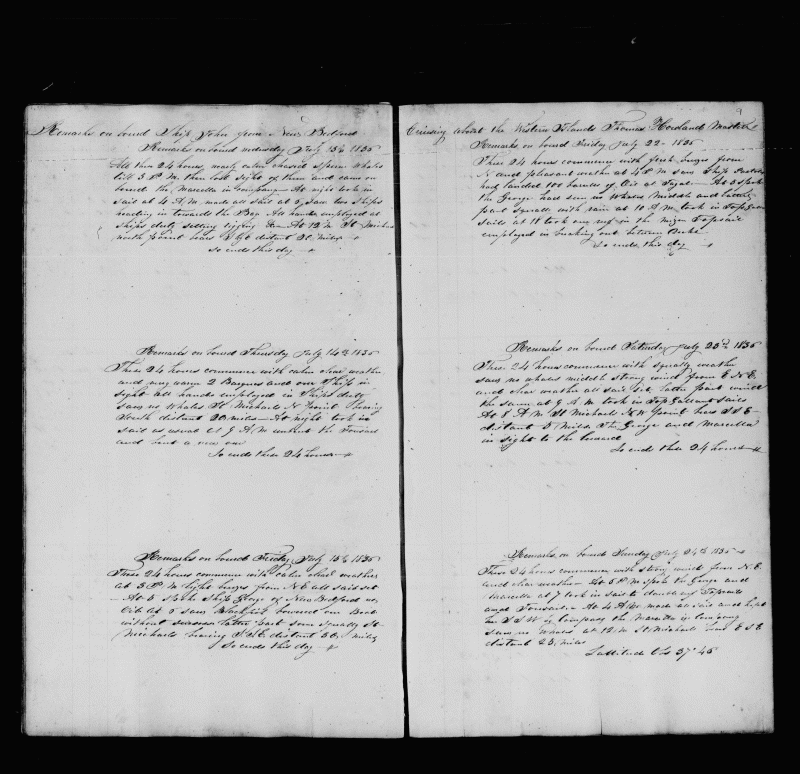 Remarks on board Ship John from New Bedford
Remarks on board Wednesday July 13th 1835
All these 24 hours calm chased Sperm Whales
till 3 P.M. then lost sight of them and came on
board the Marcella in Company At night took in
sail at 4 A.M. made all sail at 6 saw two Ships
heading in towards the Bay All hands employed at
Ships duty setting rigging At 12 M St Michaels
north point bears distant 20 miles
So ends this day
Remarks on board Thursday July 14th 1835
These 24 hours commence with calm clear weather
and very warm 2 Barques and our Ship in
sight all hands employed in Ships duty
saw no Whales St Michaels N point bearing
South distant 20 miles At night took in
sail as usual at 9 A.M. unbent the Foresail
and bent a new one
So ends these 24 hours
Remarks on board Friday July 15th 1835
These 24 hours commence with calm clear weather
at 3 P.M. light breezes from N E all sail set
At 5 Spoke Ship of New Bedford no
Oil at 6 saw Blackfish lowered one Boat
without success latter part some squally St
Michaels bearing distant 30 miles
So ends this day
9
Cruising about the Western Islands Thomas Howland Master
Remarks on board Friday July 22 1835
These 24 hours commence with fresh breezes from
N and pleasant weather at 4 P.M saw Ship
had landed 100 barrels of Oil at Fayal At 5 spoke
the George had seen no Whales Middle and latter
part squally with rain at 10 A.M. took in Top Gallant
Sails at 11 took one reef in the mizen Topsail
employed in breaking out between Decks
So ends this day
Remarks on board Saturday July 23d 1835
These 24 hours commence with squally weather
saw no whales middle strong wind from E N E
and clear weather all sail set latter part wind
the same at 9 A M took in Top Gallant sails
At 8 A M St Michael N W point bears S S E
distant 5 miles The George and Marcella
in sight to the leeward
So ends these 24 hours
Remarks on board Sunday July 24th 1835
These 24 hours commence with strong wind from N. E.
and clear weather At 5 P.M spoke the George and
Marcella at 7 took in sail to double reef Topsails
and Foresail At 4 A.M. made all sail and kept
S S W by Compass the Marcella in Company
saw no Whales at 12 M St Michaels bore E S E
distant 25 miles
Lattitude Obs 37° 45